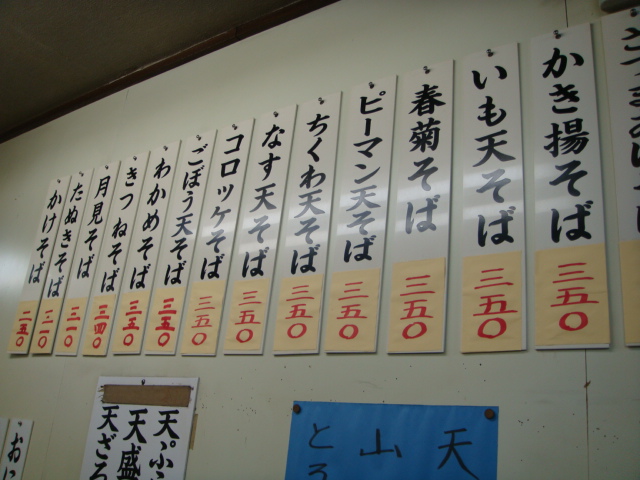 かき揚そば 三五〇
いも天そば 三五〇
春菊そば 三五〇
ピーマン天そば 三五〇
ちくわ天そば 三五〇
なす天そば 三五〇
コロッケそば 三五〇
ごぼう天そば 三五〇
わかめそば 三五〇
きつねそば 三五〇
月見そば 三四〇
たぬきそば 三一〇
かけそば 二五〇
天
山
とろ
天ぷら
天盛
天ざる
おに